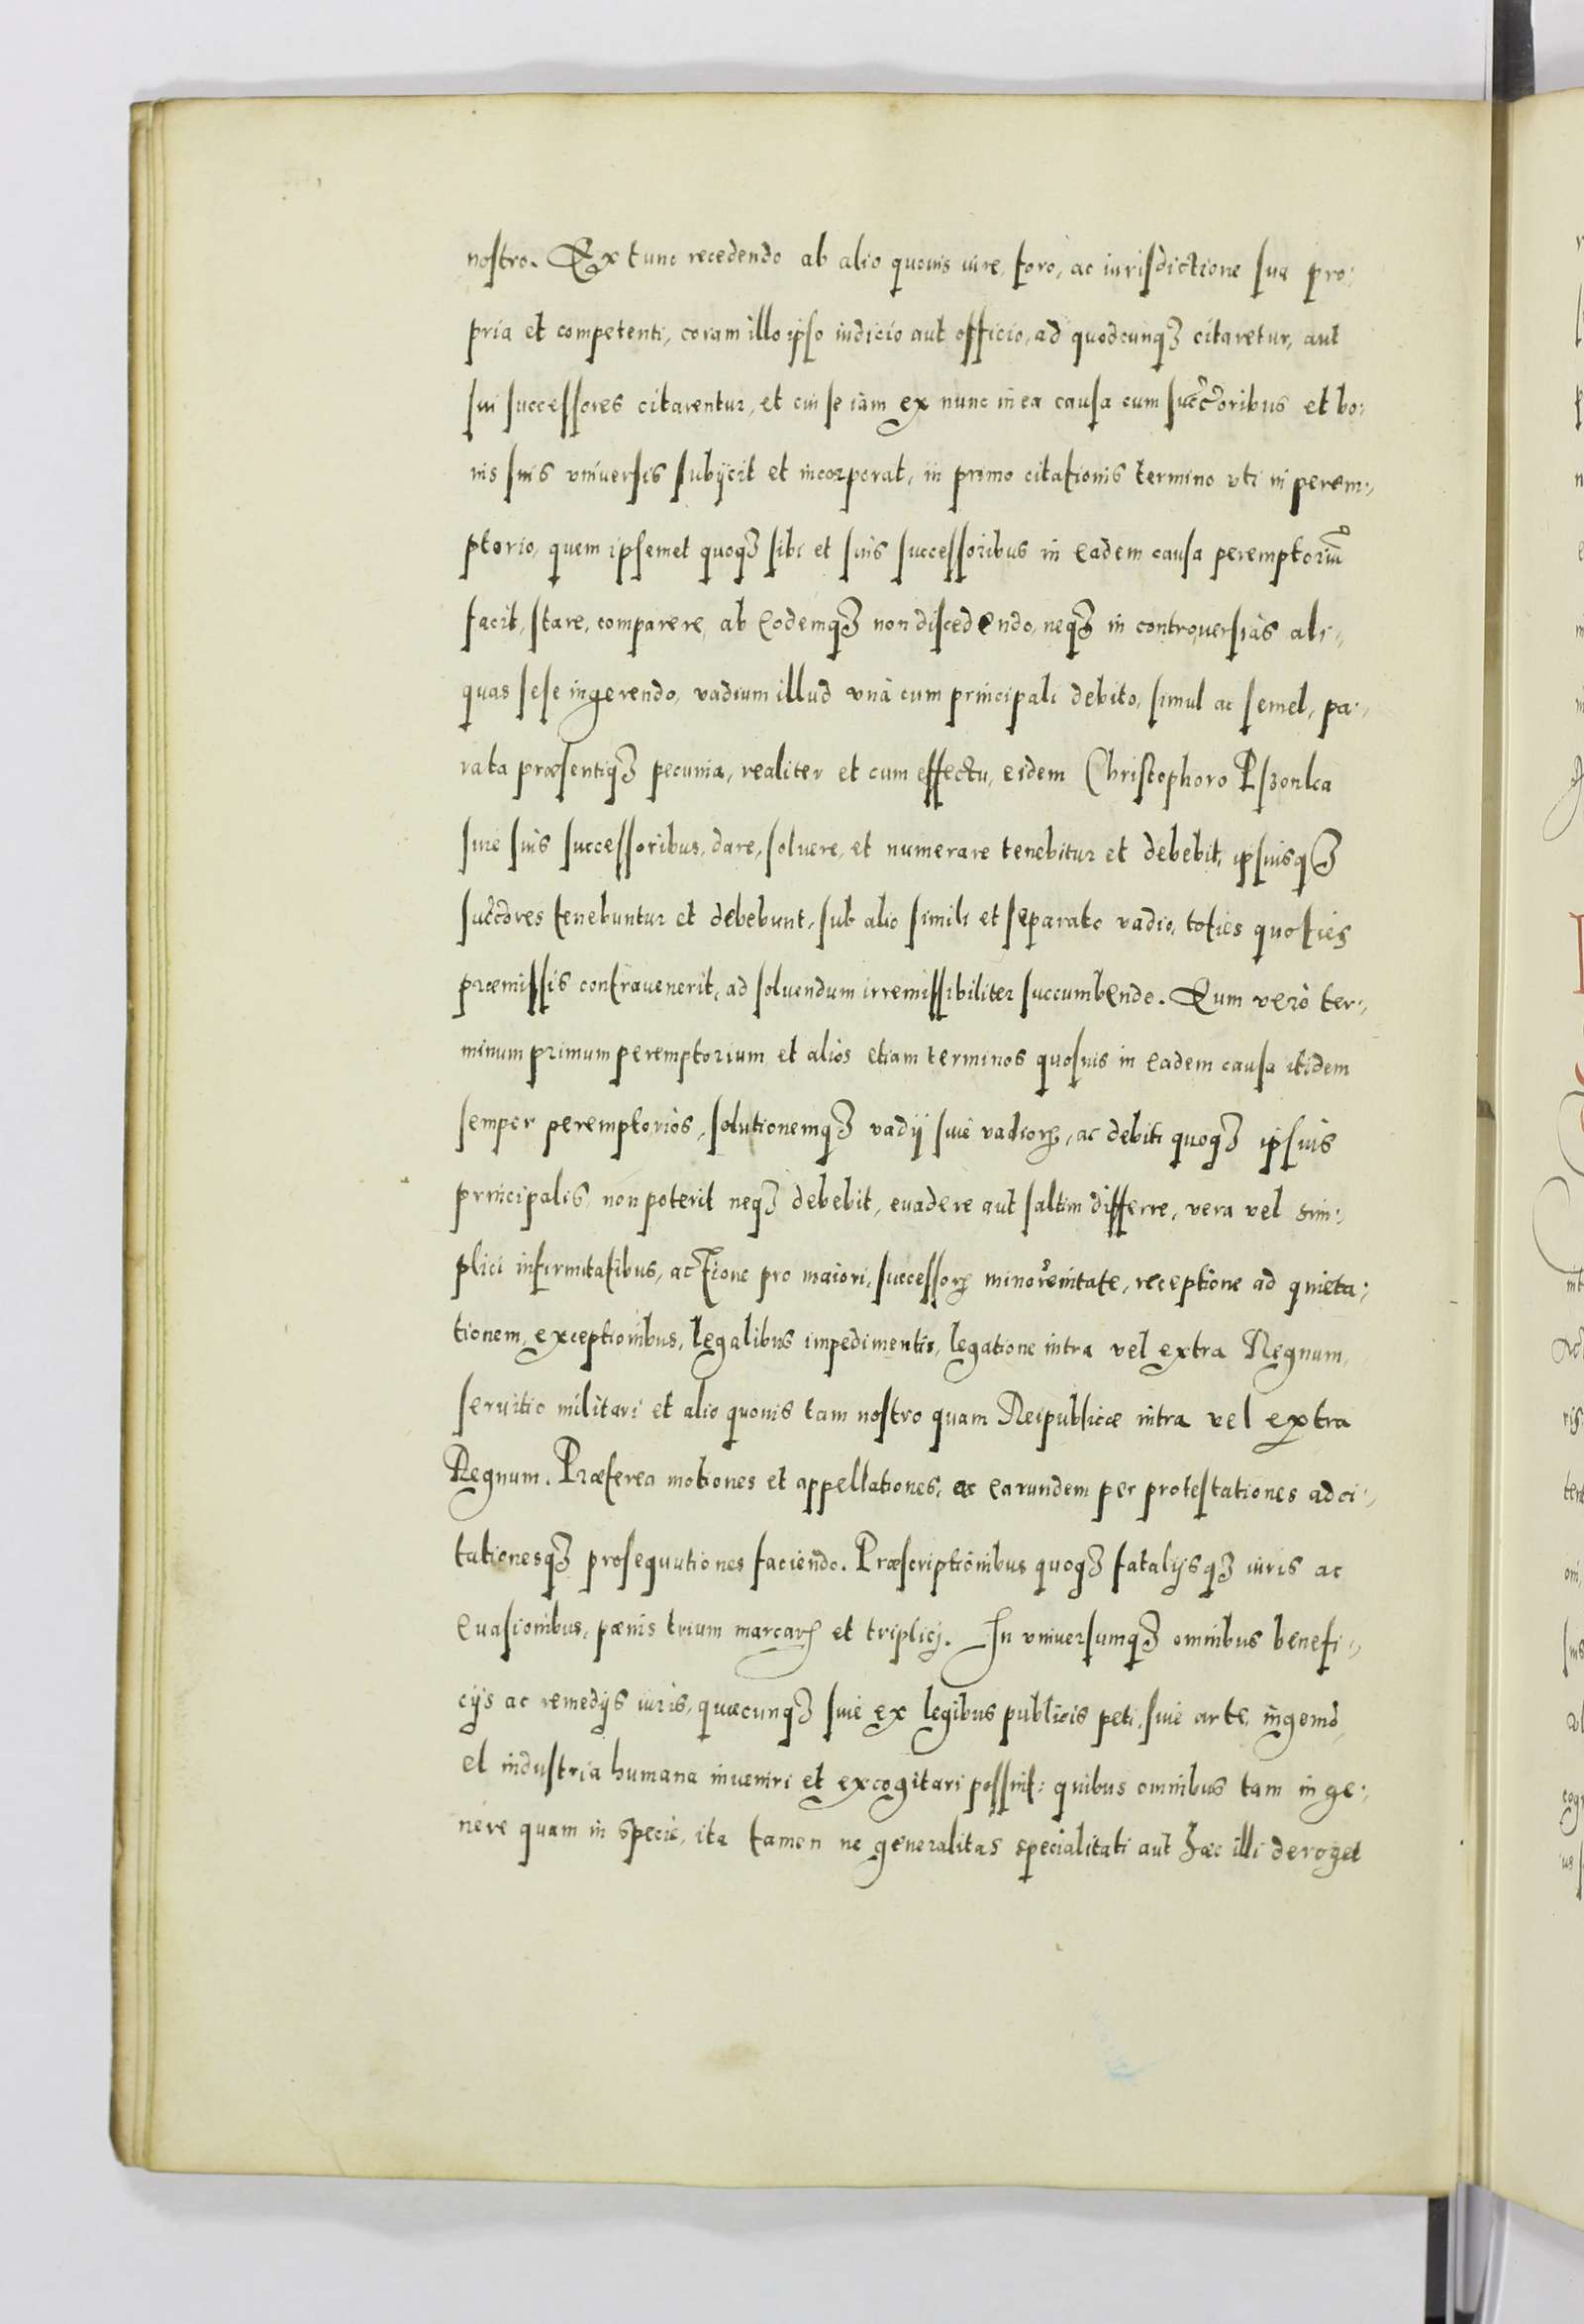 nostro. Ex tunc recedendo ab alio quouis iure, foro, ac iurisdictione sua pro:
pria et competenti, coram illo ipso iudicio aut officio, ad quodcunqȝ citaretur, aut
sui successores citarentur, et cui se iam ex nunc in ea causa cum succoribus et bo:
nis suis vniuersis subijcit et incorporat, in primo citationis termino vti in perem:,
ptorio, quem ipsemet quoqȝ sibi et suis successoribus in eadem causa peremptoriũ
facit, stare, comparere, ab eodemqȝ non discedendo, neqȝ in controuersias ali:,
quas sese ingerendo, vadium illud vnà cum principali debito, simul ac semel, pa:,
rata præsentiqȝ pecunia, realiter et cum effectu, eidem Christophoro Pszonka
siue suis successoribus, dare, soluere, et numerare tenebitur et debebit, ipsiusqȝ
succores tenebuntur et debebunt, sub alio simili et separato vadio, toties quoties
præmissis contrauenerit, ad soluendum irremissibiliter succumbendo. Eum verò ter:,
minum primum peremptorium et alios etiam terminos quosuis in eadem causa itidem
semper peremptorios, solutionemqȝ vadij siue vadiorꝝ, ac debiti quoqȝ ipsius
principalis non poterit neqȝ debebit, euadere aut saltim differre, vera vel sim:,
plici infirmitatibus, actione pro maiori, successorꝝ minorenitate, receptione ad quieta:,
tionem, exceptionibus, legalibus impedimentis, legatione intra vel extra Regnum,
seruitio militari et alio quouis tam nostro quam Reipublicæ intra vel extra
Regnum. Præterea motiones et appellationes, ac earundem per protestationes ad ci:,
tationesqȝ prosequutiones faciendo. Præscriptionibus quoqȝ fatalijsqȝ iuris ac
euasionibus, pænis trium marcarꝝ et triplicj. In vniuersumqȝ omnibus benefi:,
cijs ac remedijs iuris, quæcunqȝ siue ex legibus publicis peti, siue arte, ingenio,
et industria humana inueniri et excogitari possint: quibus omnibus tam in ge:,
nere quam in specie, ita tamen ne generalitas specialitati aut hæc illi deroget